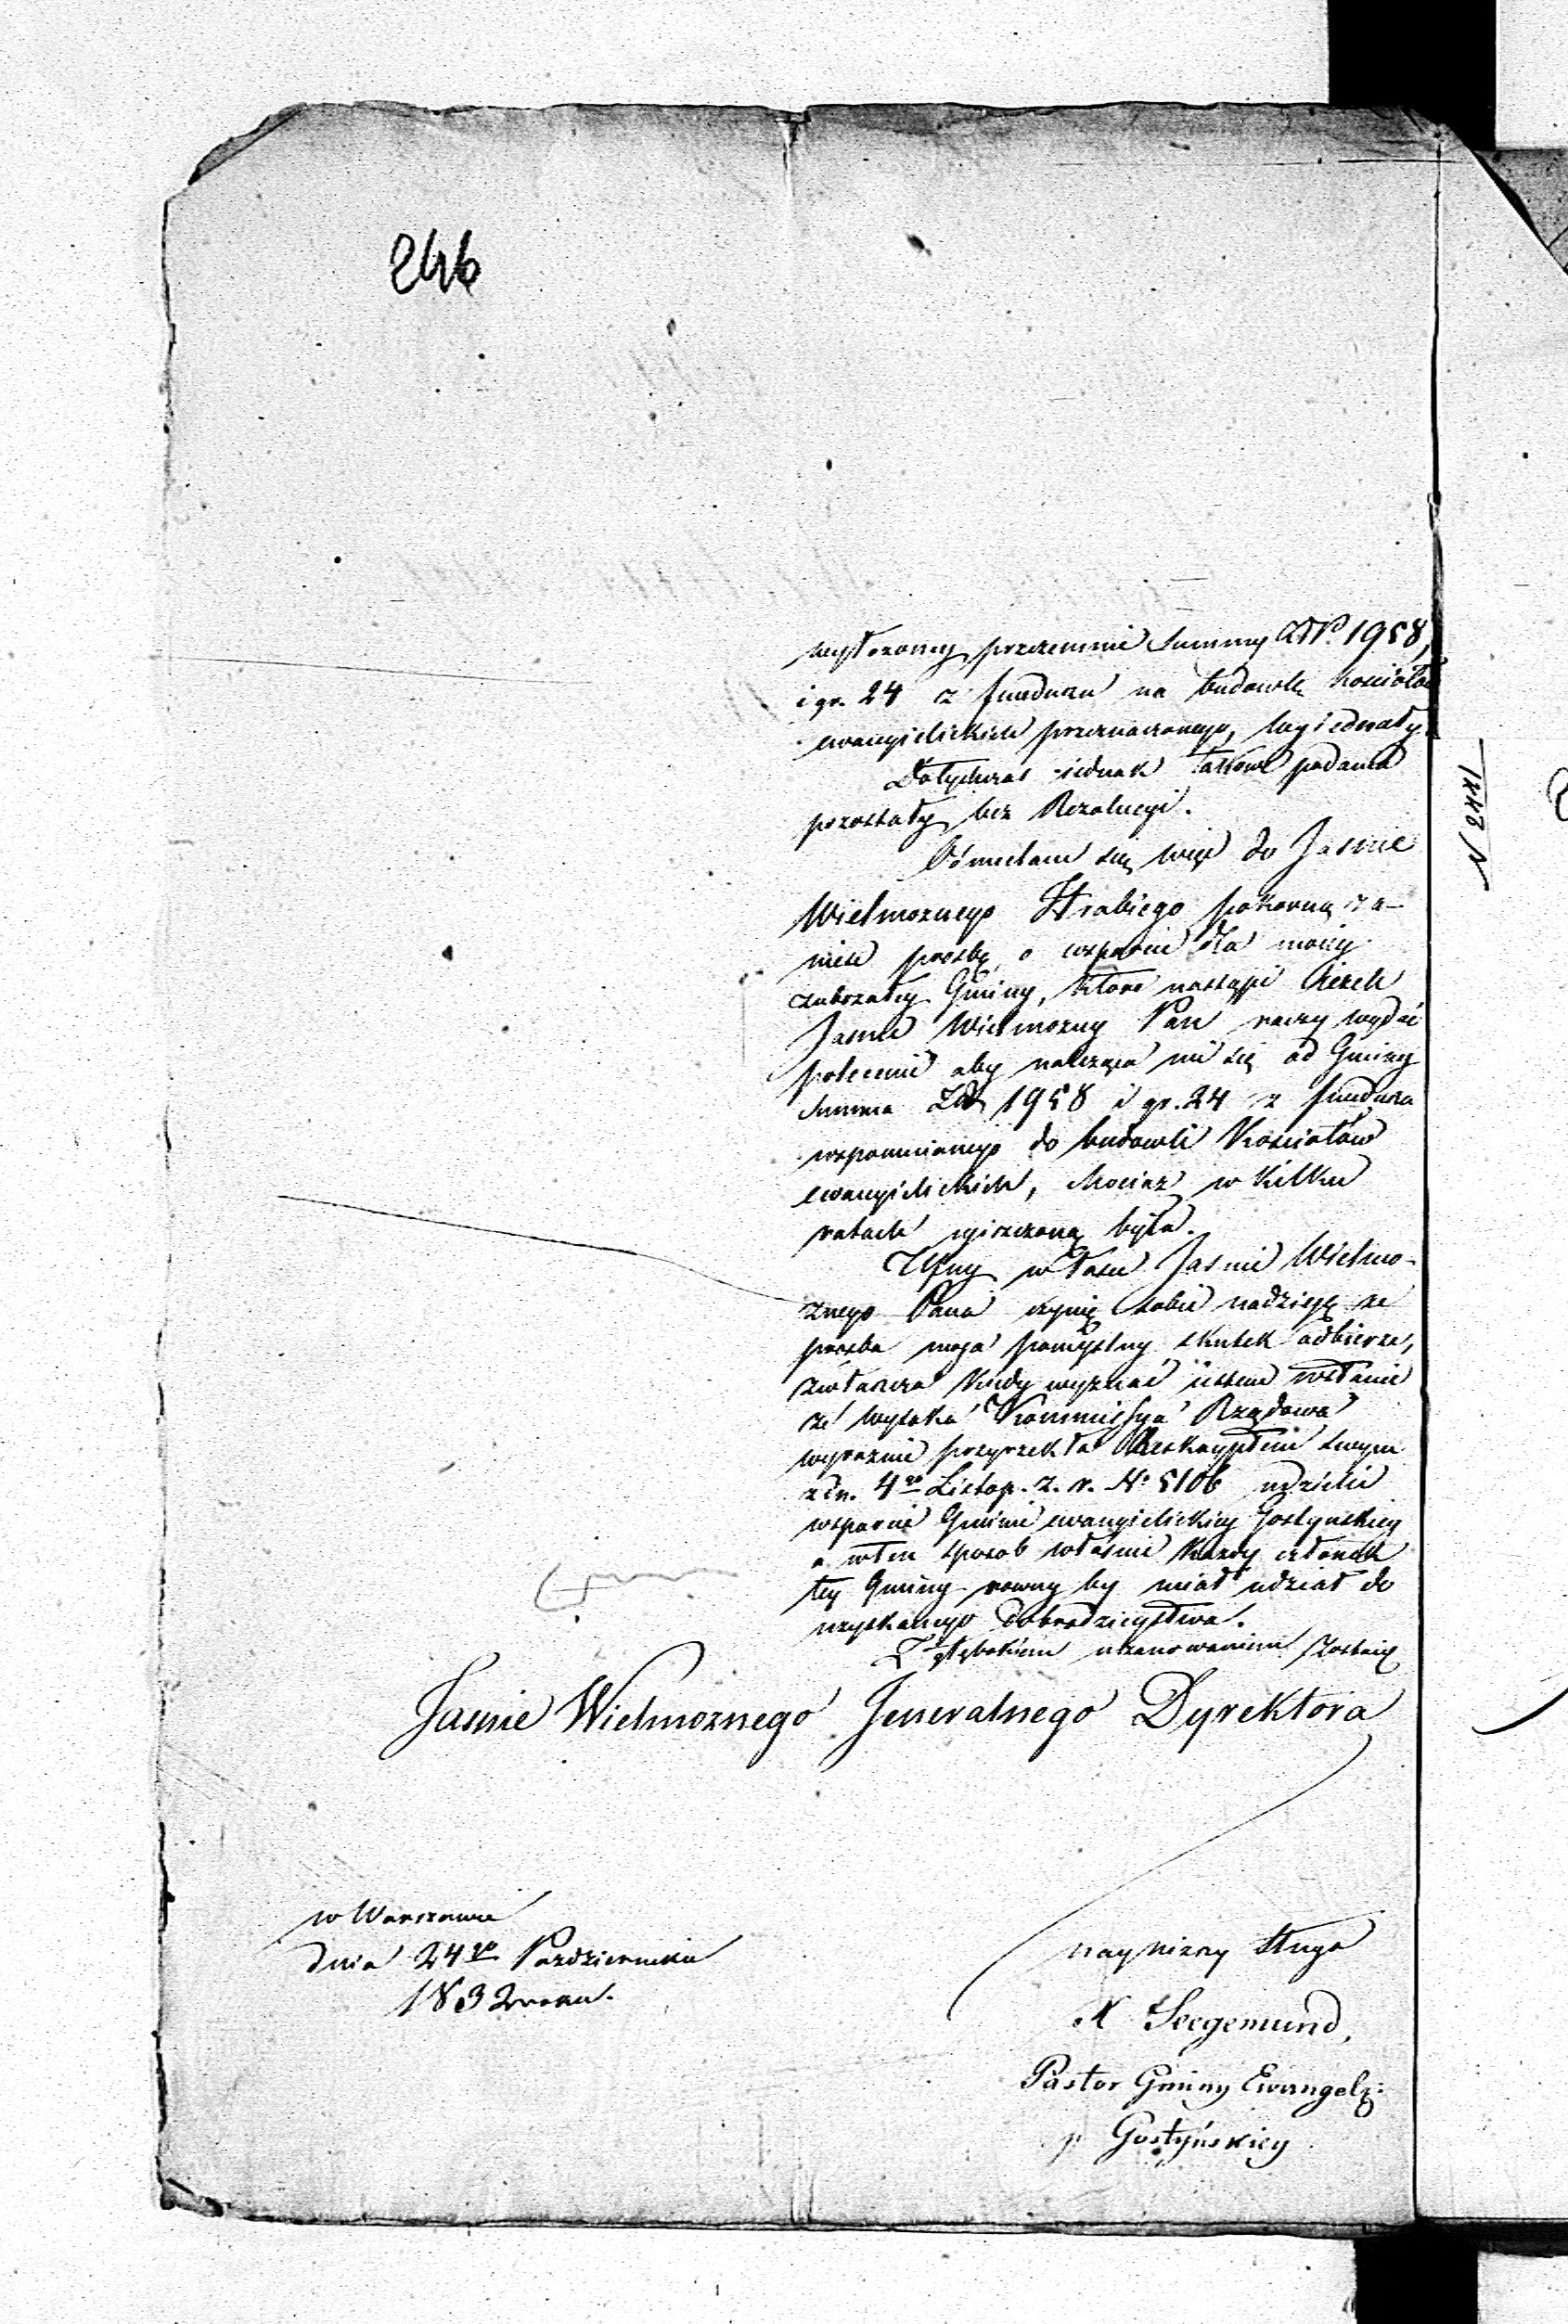 246
wyłożoney przezemnie Summy Złp. 1958,
i gr. 24 z funduszu na budowlę kosciołów
ewangielickich przeznaczonego, wyiednały.
Dotychczas iednak takowe podania
pozostały bez Rezolucyi.
Ośmielam się więc do Jasnie
Wielmoznego Hrabiego pokorną za-
niesc prosbę o wsparcie dla moiey
zubozałey Gminy, ktore nastąpi Jezeli
Jasnie Wielmozny Pan raczy wydać
polecenie aby naleząca mi się od Gminy
Summa Złp 1958 i gr. 24 z funduszu
wspomnionego do budowli Kosciołów
ewangielickich, chociaz w kilku
ratach uiszczoną była.
Ufny w Łasce Jasnie Wielmo-
znego Pana czynię sobie nadzieię ze
prosba moja pomyslny skutek odbierze,
zwłaszcza kiedy wyznać iestem wstanie
ze wysoka Kommissya Rządowa
wyraznie przyrzekła Reskryptem swym
z dn. 4go Listop. z. r. No 5106 udzielić
wsparcie Gminie ewangielickiey Gostynskiey
a wten sposob własnie kazdy członek
tey Gminy rowny by miał udział do
uzyskanego dobrodzieystwa.
Z głębokiem uszanowaniem zostaię
Jasnie Wielmoznego Jeneralnego Dyrektora
w Warszawie
dnia 24go Pazdziernika
1832 roku.
nayniszy sługa
X Seegemund,
Pastor Gminy Ewangelz:
Gostyńskiey
N 2441